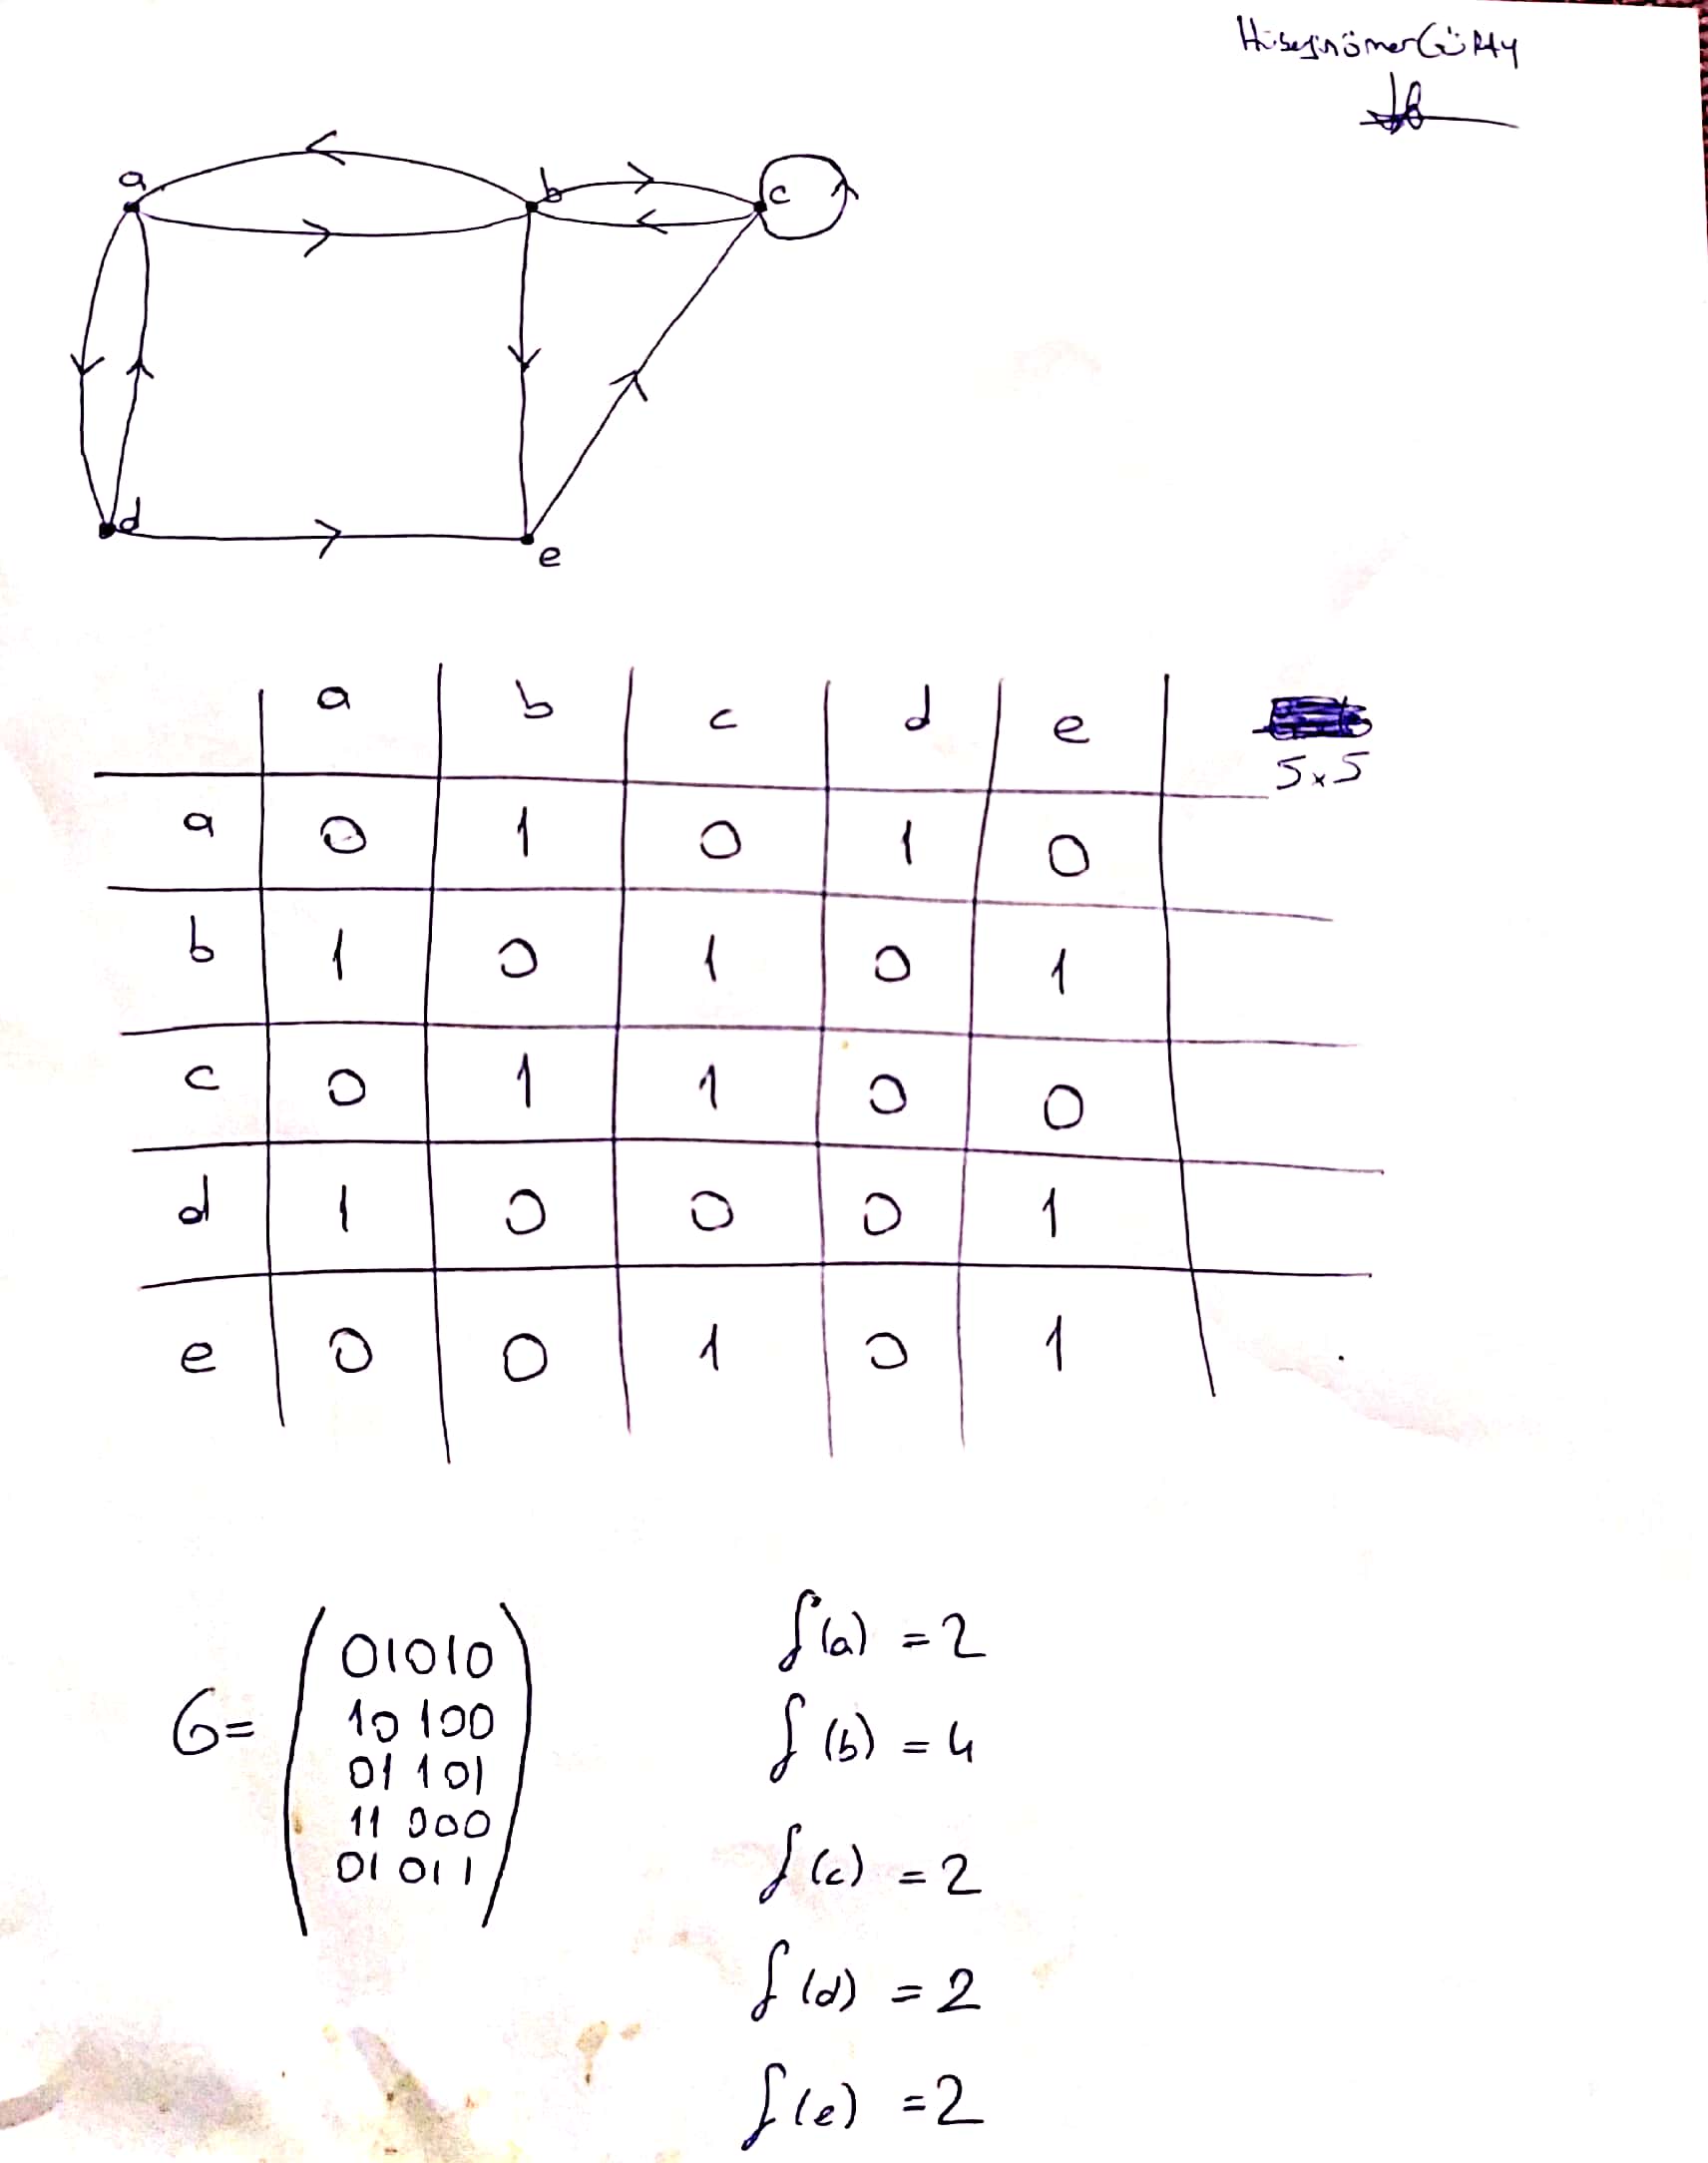 HüseyinömerGÜRAY
a b c
d e
a b c d e
5x5
a 0 1 0 1 0
b 1 0 1 0 1
c 0 1 1 0 0
d 1 0 0 0 1
e 0 0 1 0 1
01010
10100
G= 01101
11000
01011
f(a) = 2
f(b) = 4
f(c) = 2
f(d) = 2
f(e) = 2